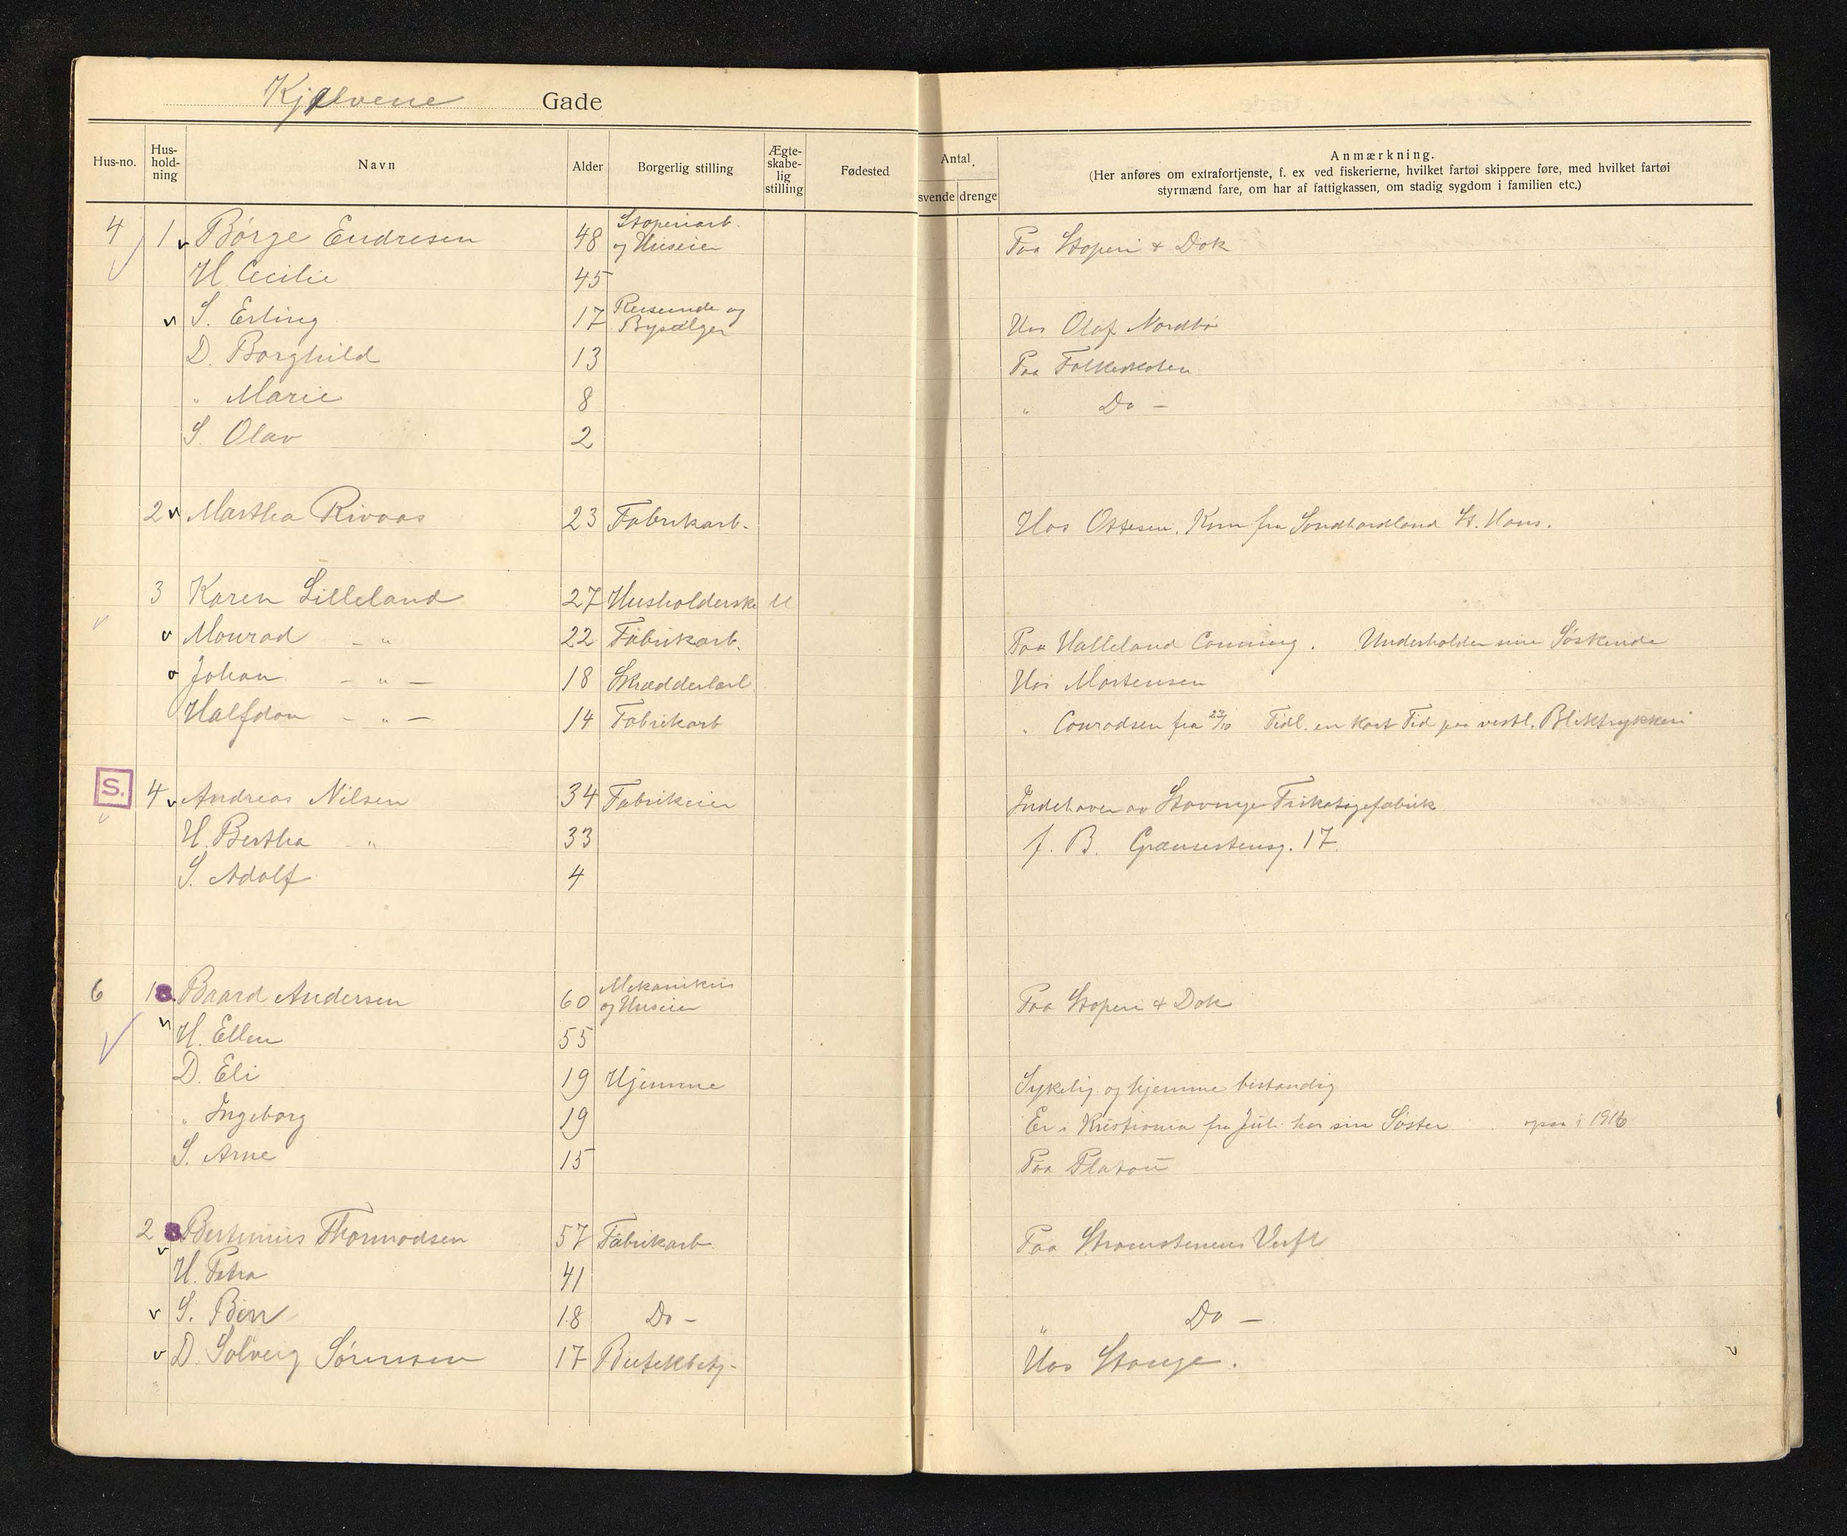 Kjelvene Gade
Hus-no. Hus-hold-ning Navn Alder Borgerlig stilling Ægte-skabe-lig stilling Fødested Antal svende drenge Anmærkning.
(Her anføres om extrafortjenste, f. ex ved fiskerierne, hvilket fartøi skippere føre, med hvilket fartøi
styrmænd fare, om har af fattigkassen, om stadig sygdom i familien etc.)
4 1 Børge Endresen 48 Støperiarb. og Huseier Paa Støperi & Dok
H. Cecilie 45
S. Erling 17 Reisende og Bysælger Hos Olaf Nordbø
D. Borghild 13 Paa Folkeskolen
" Marie 8 " Do —
S. Olav 2
2 Martha Rivaas 23 Fabrikarb. Hos Ottesen. Kom fra Søndhordland St. Hans.
3 Karen Lilleland 27 Husholderske U
Monrad — " 22 Fabrikarb. Paa Halleland Canning. Underholder sine Søskende
Johan — " — 18 Skrædderlærl. Hos Mortensen
Halfdan — " — 14 Fabrikarb " Conradsen fra 23/10 Tidl. en kort Tid paa vestl. Bliktrykkeri
S. 4 Andreas Nilsen 34 Fabrikeier Indehaver av Stavanger Trikotagefabrik
H. Bertha " 33 f. B. Grænsesteng. 17.
S. Adolf 4
6 1 S. Baard Andersen 60 Mekanikus og Huseier Paa Støperi & Dok
H. Ellen 55
D. Eli 19 Hjemme Sykelig og hjemme bestandig
" Ingeborg 19 Er i Kristiania fra Juli hos sin Søster ogsaa i 1916
S. Arne 15 Paa Platou
2 S Bertinius Thormodsen 57 Fabrikarb. Paa Strømstenens Verft
H. Petra 41
S. Berr 18 Do — " Do —
D. Solveig Sørensen 17 Butikbetj. Hos Stange.